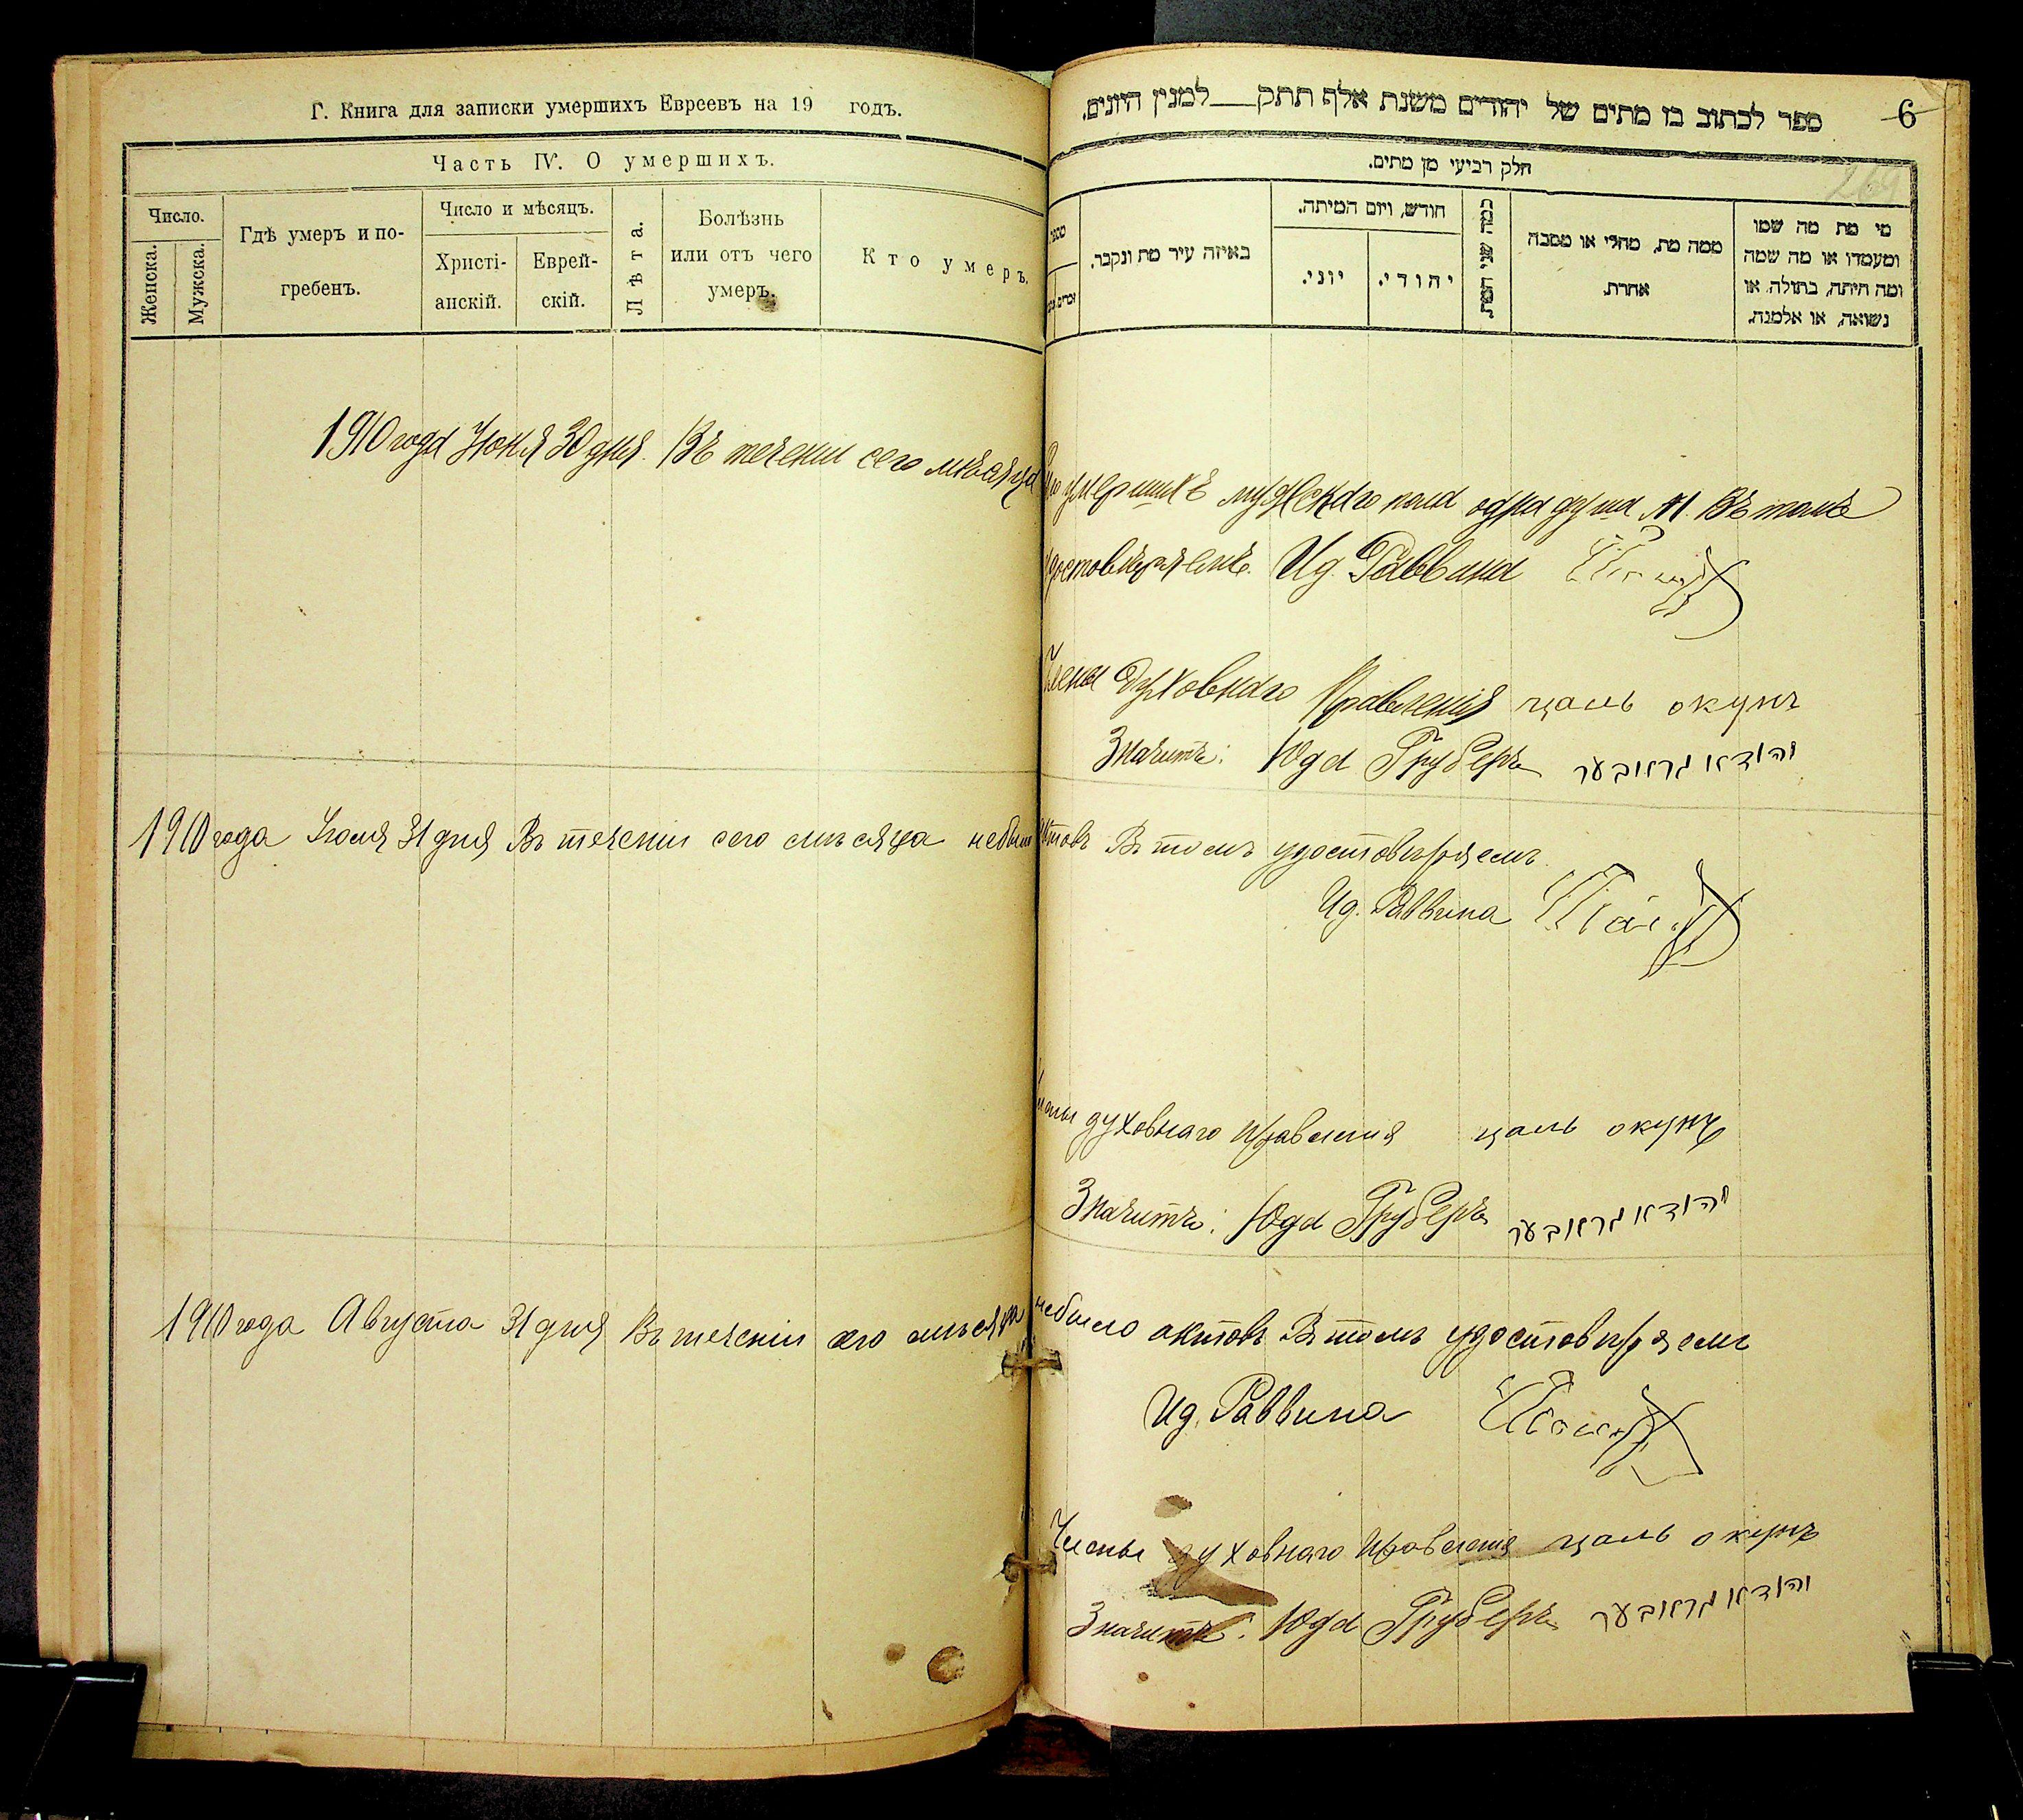 Г. Книга для записки умершихъ Евреевъ на 19 годъ.
Часть IV. О умершихъ.
Число.
Женска.
Мужска.
Гдѣ умеръ и по-
гребенъ.
Число и мѣсяцъ.
Христі-
анскій.
Еврей-
скій.
Лѣта.
Болѣзнь
или отъ чего
умеръ.
Кто умеръ.
ספר לכתוב בו מתים של יהודים משנת אלף תתק למנין היונים.
6
269
חלק רביעי מן מתים.
באיזה עיר מת ונקבר.
חודש, ויום המיתה.
יוני.
יהודי.
כמה שני המת
ממה מת, מחלי או מסבה
אחרת.
מי מת מה שמו
ומעמדו או מה שמה
ומה היתה, בתולה או
נשואה, או אלמנה.
1910 года Іюня 30 дня. Въ течении сего мѣсяца умершихъ мужскаго пола одна душа М. Въ томъ
удостовѣряемъ. Ид. Раввина
Члены Духовнаго Правленія цаль окунъ
Значитъ: Юда Груберъ יהודא גראובער
1910 года Іюля 31 дня Въ течении сего мѣсяца небыло актовъ Въ томъ удостовѣряемъ.
Ид. Раввина
Члены духовнаго правления цаль окунъ
Значитъ: Юда Груберъ יהודא גראובער
1910 года Августа 31 дня Въ течении сего мѣсяца небыло актовъ Въ томъ удостовѣряемъ
Ид. Раввина
Члены духовнаго правления цаль окунъ
Значитъ: Юда Груберъ יהודא גראובער